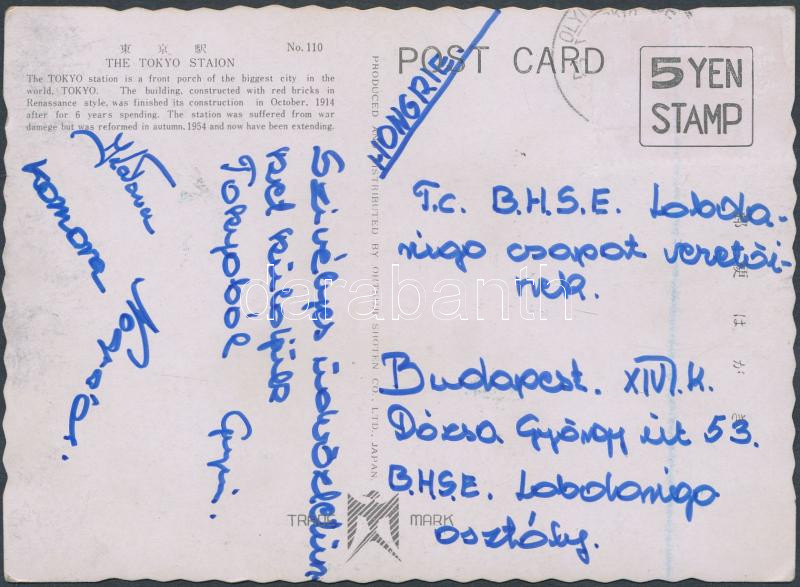 東京駅 No. 110
THE TOKYO STAION
The TOKYO station is a front porch of the biggest city in the
world, TOKYO. The building, constructed with red bricks in
Renassance style, was finished its construction in October, 1914
after for 6 years spending. The station was suffered from war
damege but was reformed in autumn, 1954 and now have been extending.
POST CARD
5 YEN
STAMP
HONGRIE
T.C. B.H.S.E. Labda-
rúgó csapat vezetői-
nek.
Budapest. XIV. k.
Dózsa György út 53.
B.H.S.E. Labdarúgó
osztály.
Szívélyes üdvözletün-
ket küldjük
Tokyoból
Gyuri.
Komora
TRADE MARK
郵便はがき
darabanth